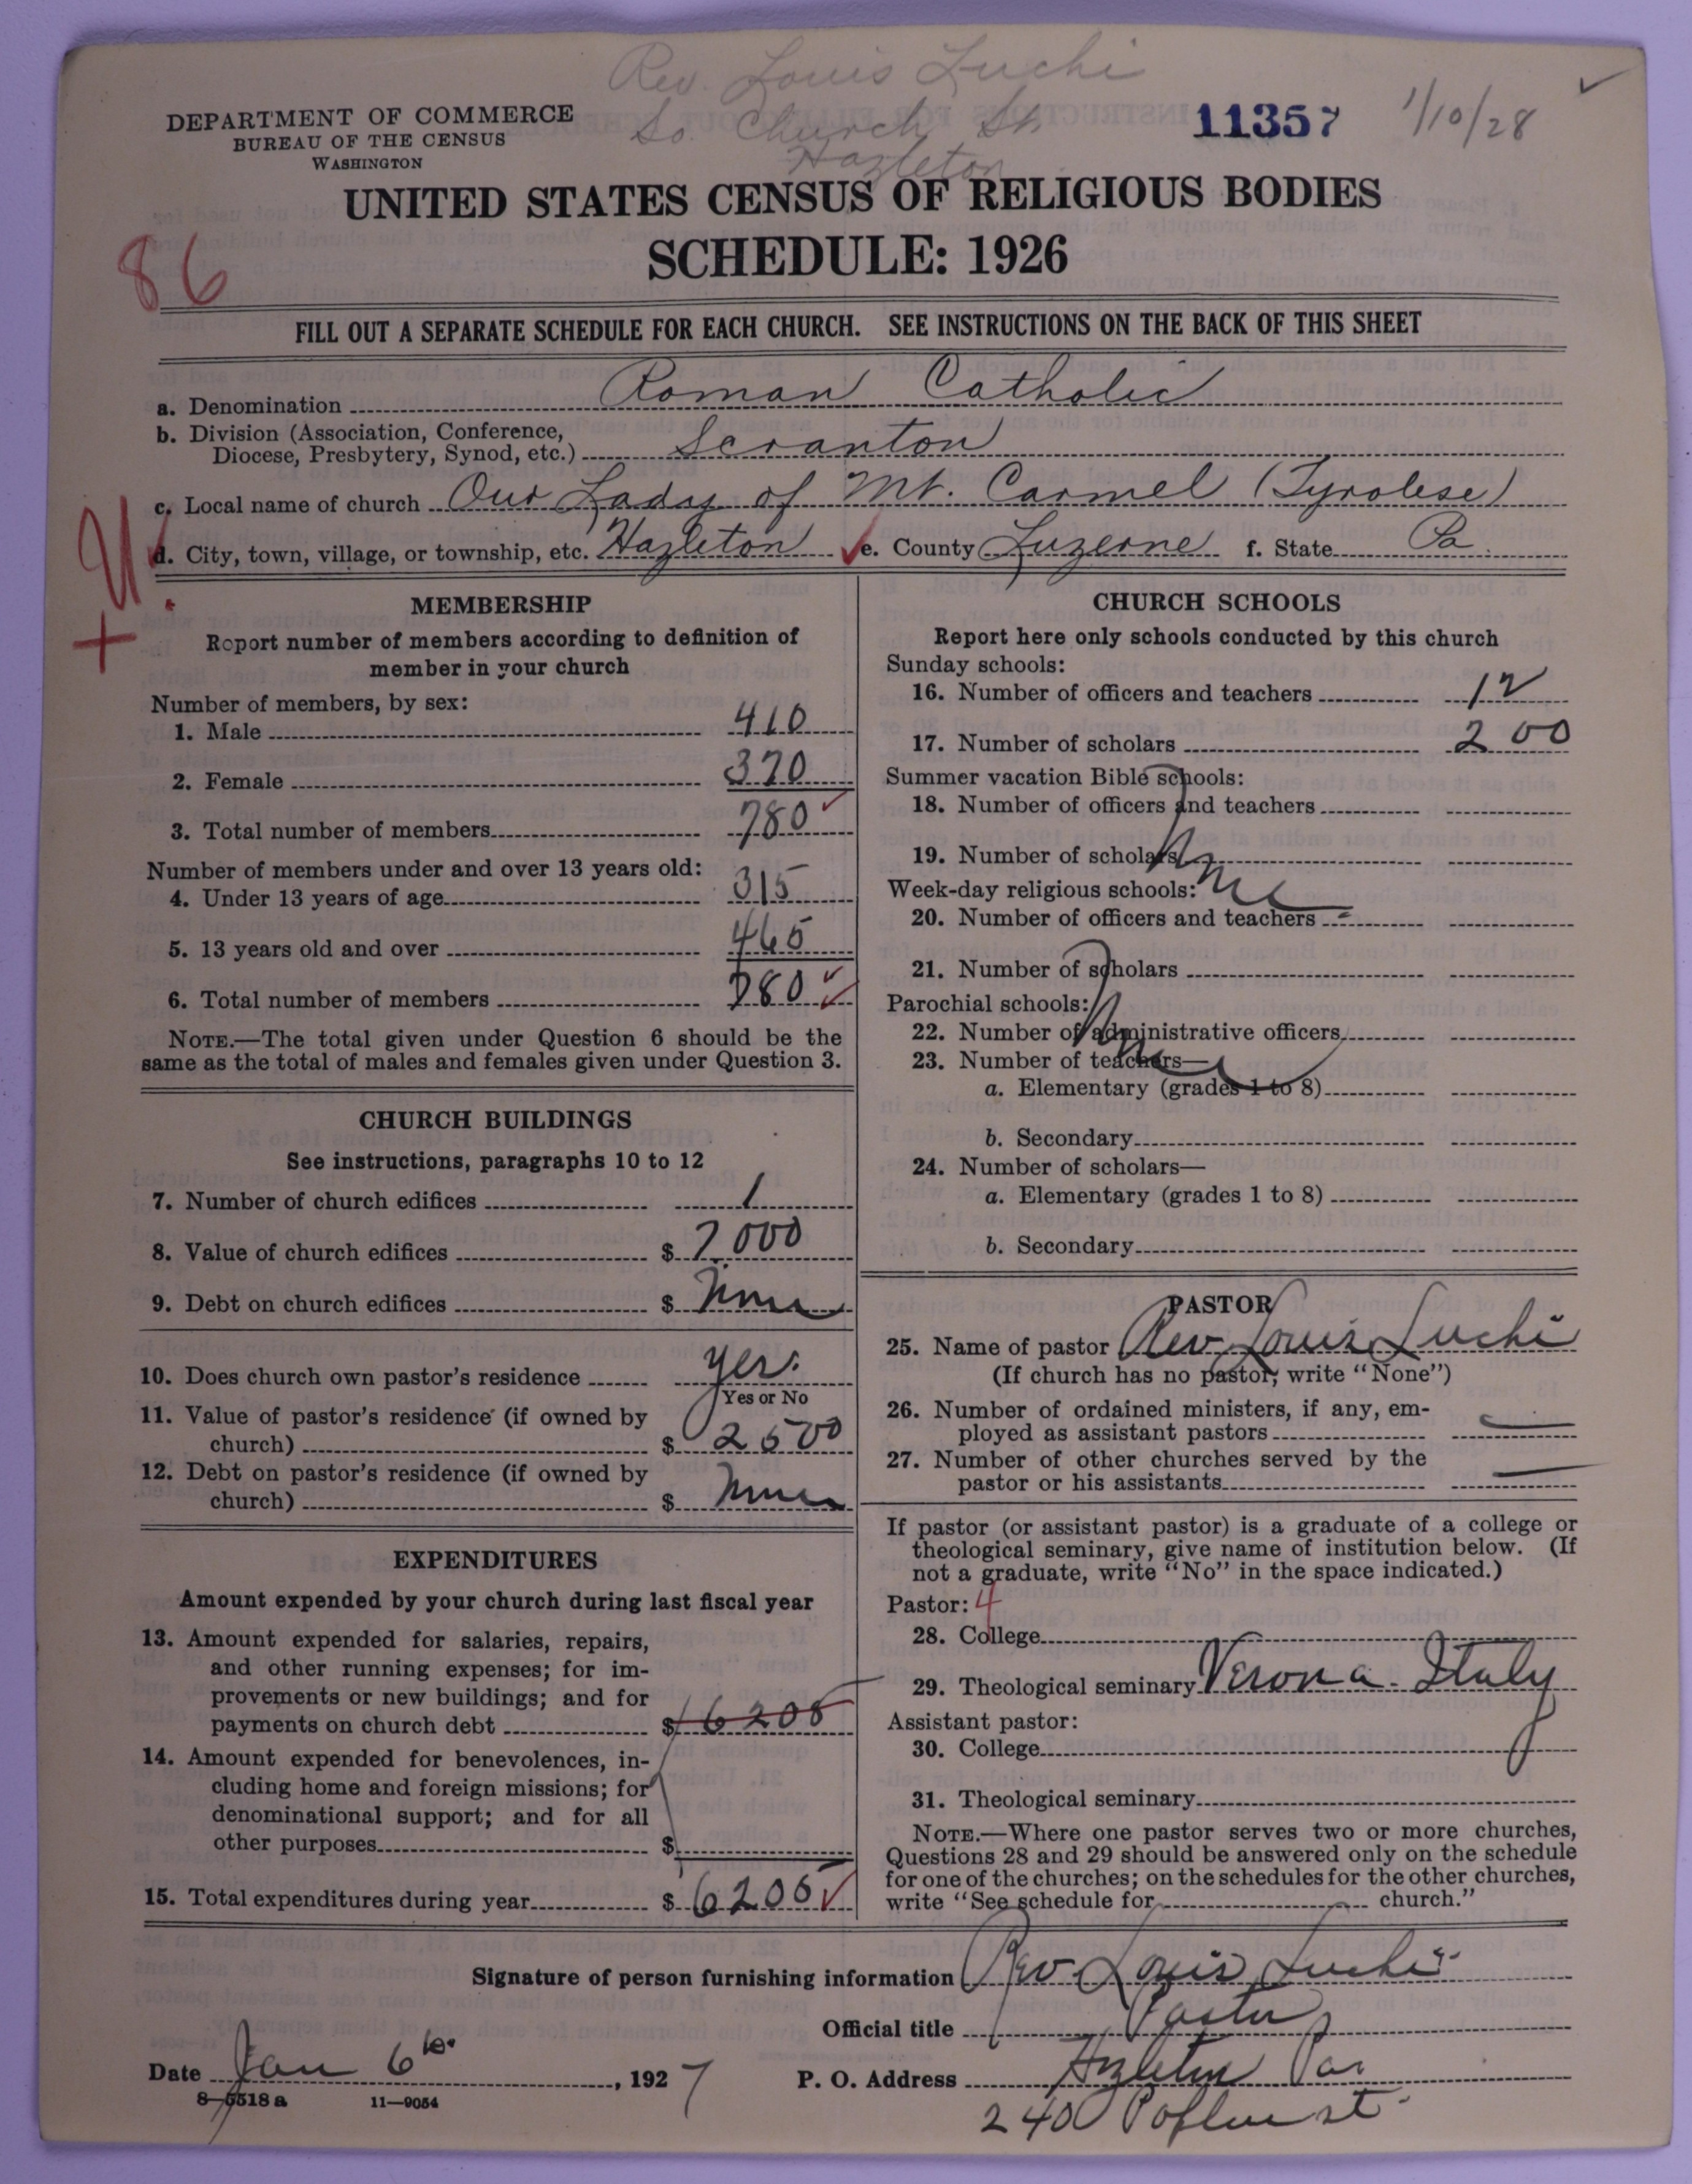 Rev. Louis Luchi
So. Church St.
Hazleton
DEPARTMENT OF COMMERCE
BUREAU OF THE CENSUS
WASHINGTON
11357
1/10/28
UNITED STATES CENSUS OF RELIGIOUS BODIES
SCHEDULE: 1926
86
FILL OUT A SEPARATE SCHEDULE FOR EACH CHURCH. SEE INSTRUCTIONS ON THE BACK OF THIS SHEET
a. Denomination Roman Catholic
b. Division (Association, Conference,
Diocese, Presbytery, Synod, etc.) Scranton
c. Local name of church Our Lady of Mt. Carmel (Tyrolese)
d. City, town, village, or township, etc. Hazleton e. County Luzerne f. State Pa.
MEMBERSHIP
Report number of members according to definition of
member in your church
Number of members, by sex:
1. Male 410
2. Female 370
3. Total number of members 780
Number of members under and over 13 years old:
4. Under 13 years of age 315
5. 13 years old and over 465
6. Total number of members 780
NOTE.—The total given under Question 6 should be the
same as the total of males and females given under Question 3.
CHURCH BUILDINGS
See instructions, paragraphs 10 to 12
7. Number of church edifices 1
8. Value of church edifices $ 7000
9. Debt on church edifices $ None
10. Does church own pastor's residence yes.
Yes or No
11. Value of pastor's residence (if owned by
church) $ 2500
12. Debt on pastor's residence (if owned by
church) $ None
EXPENDITURES
Amount expended by your church during last fiscal year
13. Amount expended for salaries, repairs,
and other running expenses; for im-
provements or new buildings; and for
payments on church debt $ 6205
14. Amount expended for benevolences, in-
cluding home and foreign missions; for
denominational support; and for all
other purposes $
15. Total expenditures during year $ 6205
CHURCH SCHOOLS
Report here only schools conducted by this church
Sunday schools:
16. Number of officers and teachers 12
17. Number of scholars 200
Summer vacation Bible schools:
18. Number of officers and teachers
19. Number of scholars None
Week-day religious schools:
20. Number of officers and teachers
21. Number of scholars
Parochial schools: None
22. Number of administrative officers
23. Number of teachers—
a. Elementary (grades 1 to 8)
b. Secondary
24. Number of scholars—
a. Elementary (grades 1 to 8)
b. Secondary
PASTOR
25. Name of pastor Rev. Louis Luchi
(If church has no pastor, write "None")
26. Number of ordained ministers, if any, em-
ployed as assistant pastors
27. Number of other churches served by the
pastor or his assistants
If pastor (or assistant pastor) is a graduate of a college or
theological seminary, give name of institution below. (If
not a graduate, write "No" in the space indicated.)
Pastor: 4
28. College
29. Theological seminary Verona. Italy
Assistant pastor:
30. College
31. Theological seminary
NOTE.—Where one pastor serves two or more churches,
Questions 28 and 29 should be answered only on the schedule
for one of the churches; on the schedules for the other churches,
write "See schedule for church."
Signature of person furnishing information Rev. Louis Luchi
Official title Pastor
Date Jan 6, 1927
P. O. Address Hazleton Pa
240 Poplar st.
8—5518 a 11—9054